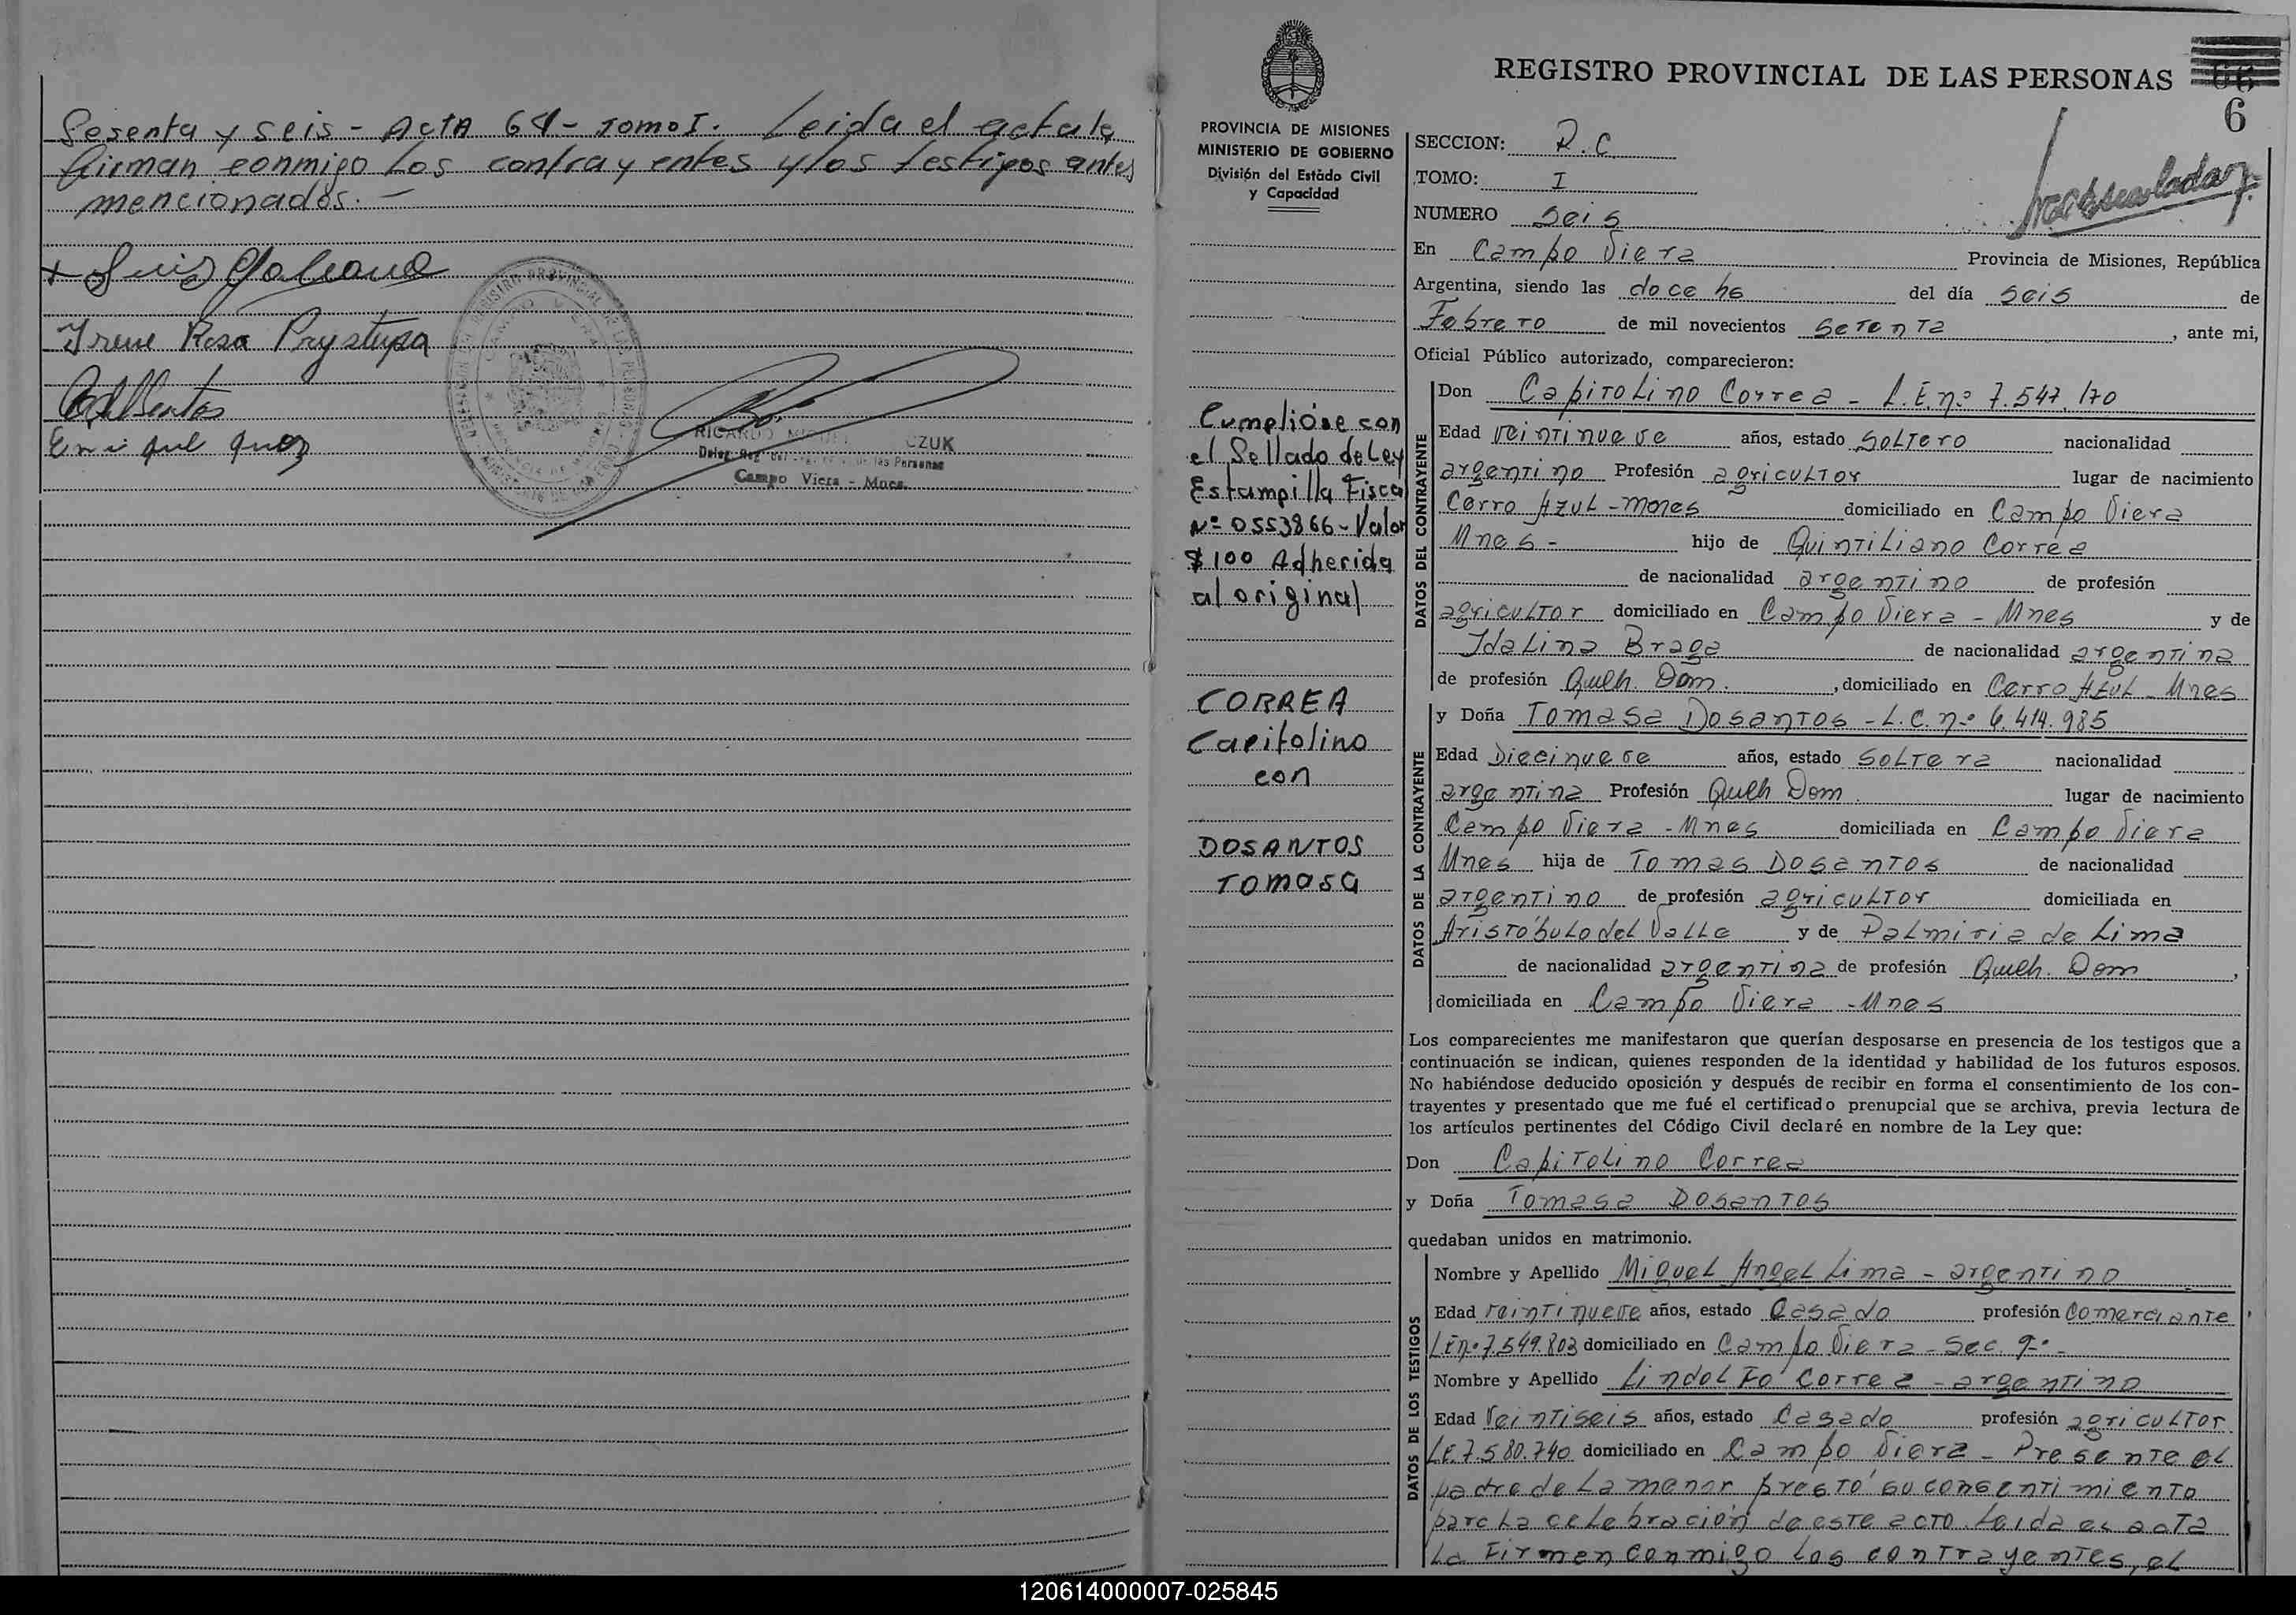 Sesenta y seis - Acta 64 - Tomo I. Leida el acta la
firman conmigo los contrayentes y los testigos antes
mencionados. -
Luis Galeano
Irene Rosa Prystupa
RICARDO MIGUEL CZUK
Campo Viera - Mnes.
REGISTRO PROVINCIAL DE LAS PERSONAS
66
6
PROVINCIA DE MISIONES
MINISTERIO DE GOBIERNO
División del Estado Civil
y Capacidad
Cumplióse con
el Sellado de Ley
Estampilla Fiscal
Nº 0553866 - Valor
$ 100 Adherida
al original
CORREA
Capitolino
con
DOSANTOS
TOMASA
SECCION: R.C.
TOMO: I
NUMERO Seis
En Campo Viera Provincia de Misiones, República
Argentina, siendo las doce hs del día seis de
Febrero de mil novecientos setenta, ante mi,
Oficial Público autorizado, comparecieron:
DATOS DEL CONTRAYENTE
Don Capitolino Correa - L.E. nº 7.547.170
Edad veintinueve años, estado soltero nacionalidad
argentino Profesión agricultor lugar de nacimiento
Cerro Azul - Mnes domiciliado en Campo Viera
Mnes - hijo de Quintiliano Correa
de nacionalidad argentino de profesión
agricultor domiciliado en Campo Viera - Mnes y de
Idalina Braga de nacionalidad argentina
de profesión Queh. Dom. , domiciliado en Cerro Azul - Mnes
DATOS DE LA CONTRAYENTE
y Doña Tomasa Dosantos - L.C. nº 6.414.985
Edad Diecinueve años, estado soltera nacionalidad
argentina Profesión Queh Dom. lugar de nacimiento
Campo Viera - Mnes domiciliada en Campo Viera
Mnes hija de Tomas Dosantos de nacionalidad
argentino de profesión agricultor domiciliada en
Aristóbulo del Valle y de Palmiria de Lima
de nacionalidad argentina de profesión Queh. Dom ,
domiciliada en Campo Viera - Mnes
Los comparecientes me manifestaron que querían desposarse en presencia de los testigos que a
continuación se indican, quienes responden de la identidad y habilidad de los futuros esposos.
No habiéndose deducido oposición y después de recibir en forma el consentimiento de los con-
trayentes y presentado que me fué el certificado prenupcial que se archiva, previa lectura de
los artículos pertinentes del Código Civil declaré en nombre de la Ley que:
Don Capitolino Correa
y Doña Tomasa Dosantos
quedaban unidos en matrimonio.
DATOS DE LOS TESTIGOS
Nombre y Apellido Miguel Angel Lima - argentino
Edad veintinueve años, estado Casado profesión Comerciante
L.E. nº 7.549.803 domiciliado en Campo Viera - Sec. 9º -
Nombre y Apellido Lindolfo Correa - argentino
Edad Veintiseis años, estado Casado profesión agricultor
L.E. 7.580.740 domiciliado en Campo Viera - Presente el
padre de la menor prestó su consentimiento
para la celebración de este acto. Leida el acta
la firman conmigo los contrayentes, el
120614000007-025845